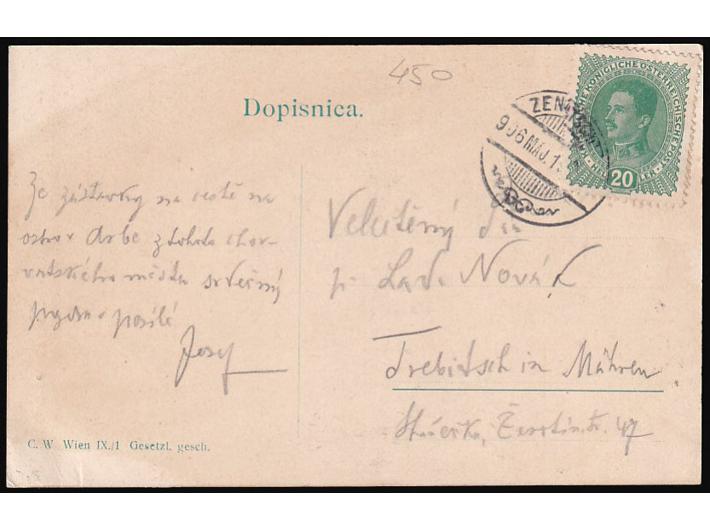 450
Dopisnica.
ZEN
906 MAJ. 1
KÖNIGLICHE ÖSTERREICHISCHE POST
20
Ze zástavky na cestě na
ostrov Arbe z tohoto chor-
vatského města srdečný
pozdrav posílá
Josef
Velectěný
p. Lad. Novák
Trebitsch in Mähren
47
C. W. Wien IX./1 Gesetzl. gesch.